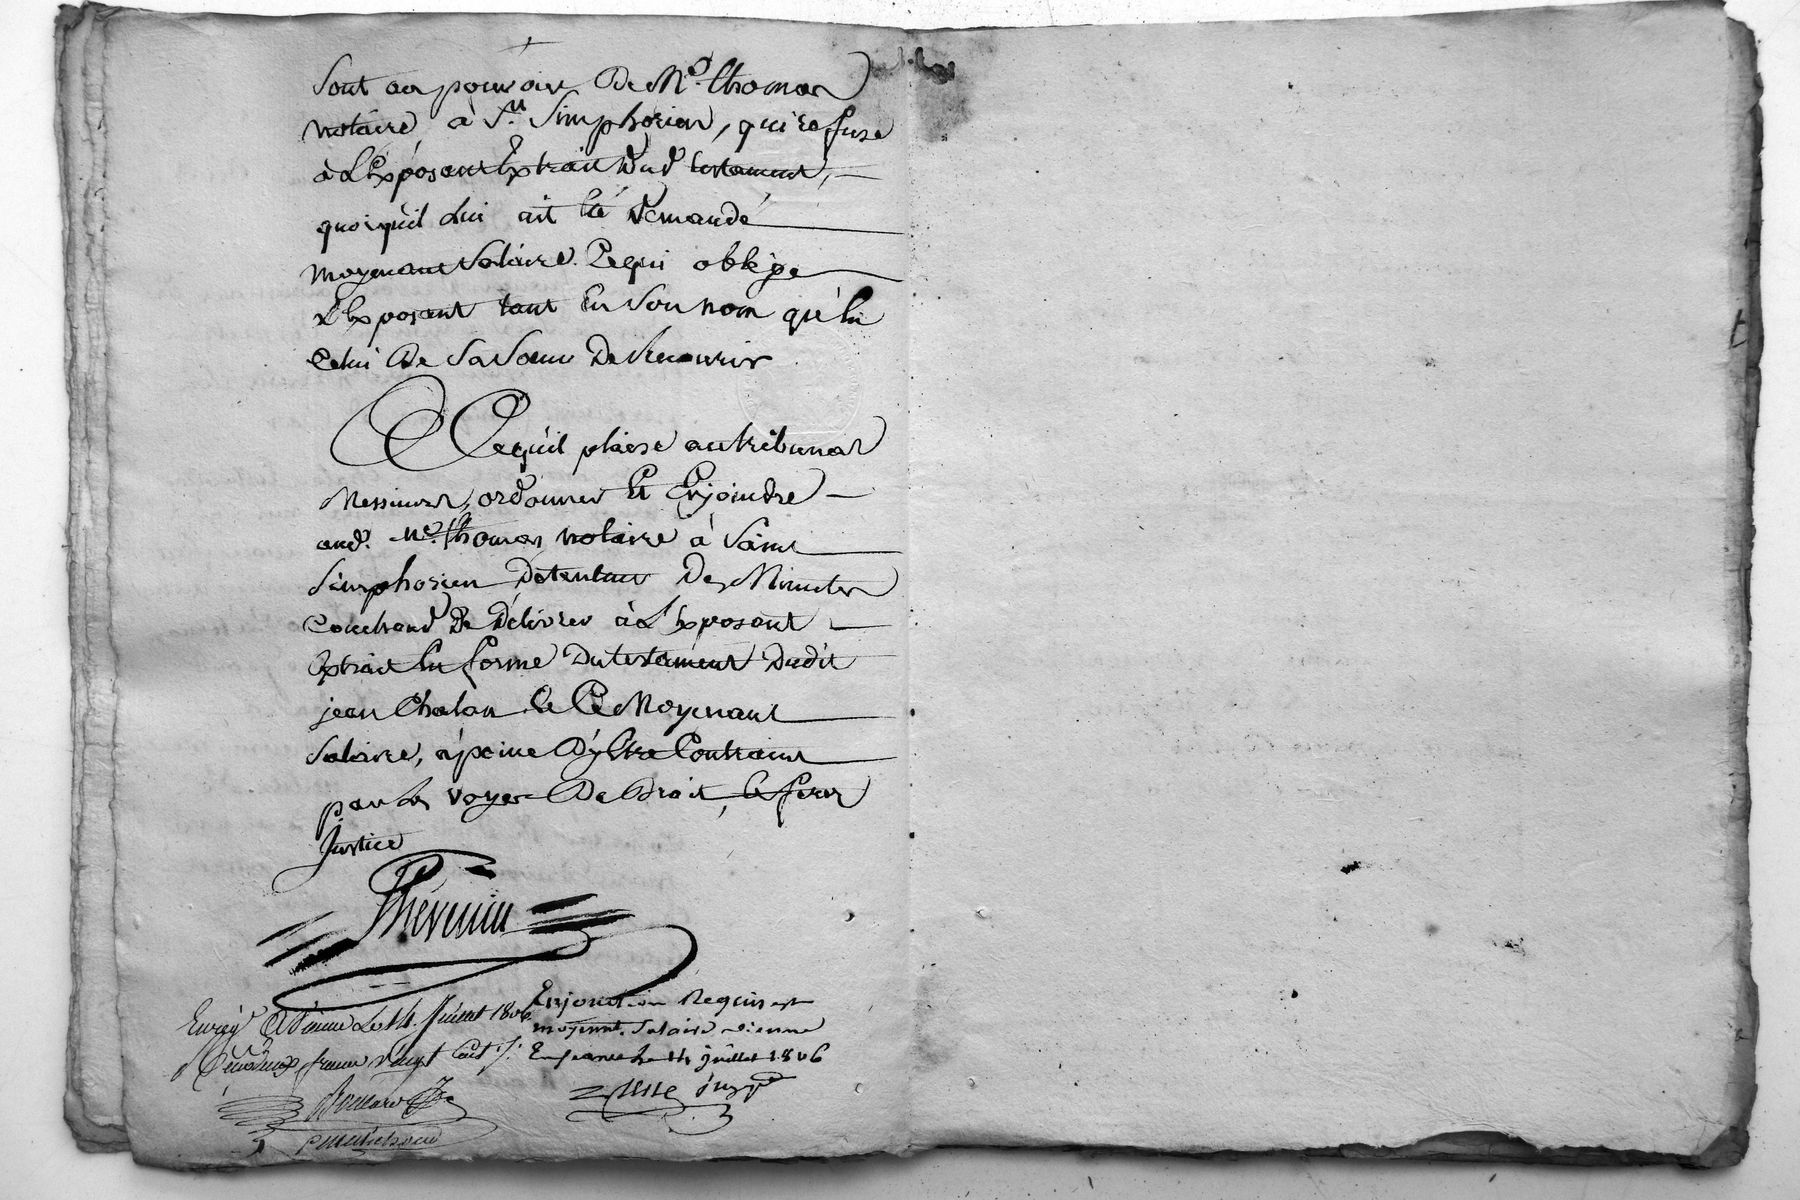 Sont au pouvoir De Me. thomas
notaire à St. Simphorien, qui refuse
à L'Exposant Extrait Dud. testament,
quoiqu'il Lui ait Eté Demandé
moyenant Salaire. Cequi oblige
L'Exposant tant En Son nom qu'En
Celui De Sa Soeur De Recourir
Cequ'il plaise au tribunal
Messieurs, ordonner Et Enjoindre
aud. Me. thomas notaire à Saint
Simphorien Détenteur Des Minutes
De Délivrer à L'Exposant
Extrait En forme Du testament Dudit
jean Chalon Et Ce Moyenant
Salaire, à peine D'y Etre Contraint
par Les voyes De Droit, Et feres
Justice
Thévenin
Enregé. A Vienne Le 14. Juillet 1806
francs vingt Cent
Enjonction Requise
moyennt. Salaire vienne
En Seance Le 14 juillet 1806